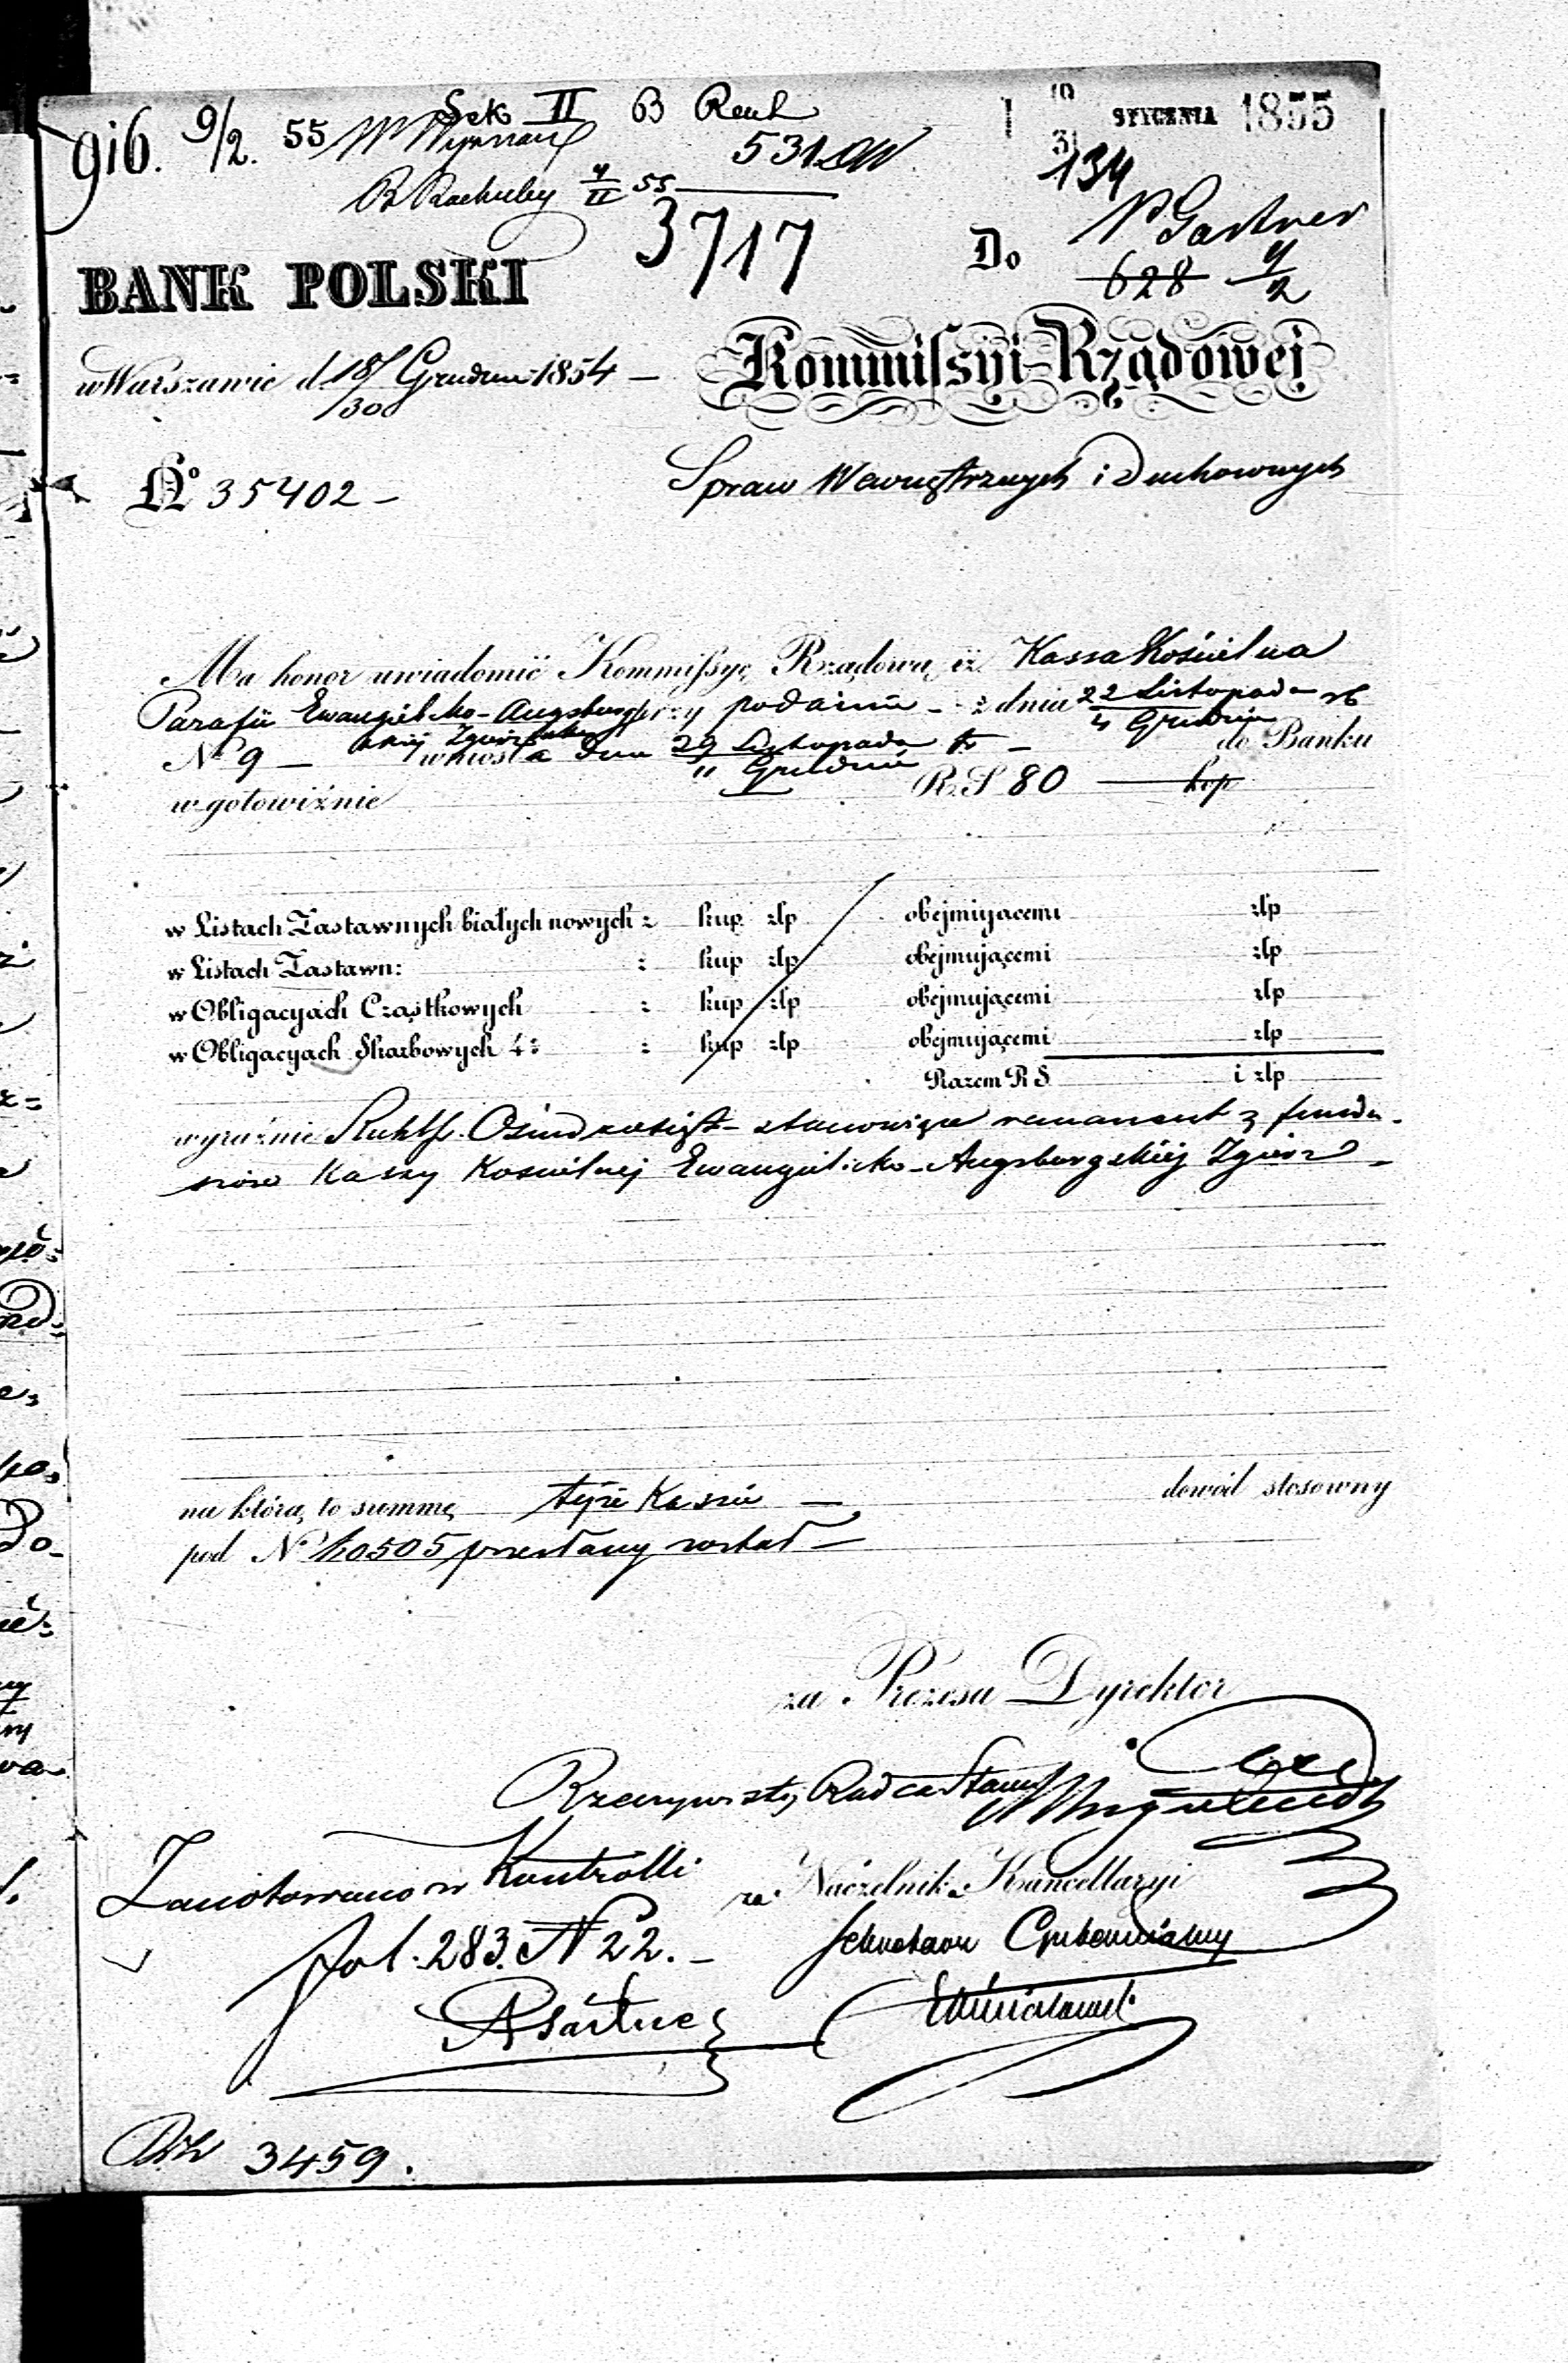 916. 9/2. 55 Sek II B
531
19/31 STYCZNIA 1855
134
3717
Do
628 4/2
BANK POLSKI
w Warszawie d 18/30 Grudnia 1854 —
Kommissyi Rządowej
No 35402 —
Spraw Wewnętrznych i Duchownych
Ma honor uwiadomić Kommissyę Rządową iż Kassa Kościelna
Parafii Ewangielicko-Augsburg przy podaniu - z dnia 22 Listopada / 4 Grudnia rb
skiej Zgierskiej
No 9 — wniosła dnia 29 Listopada / 11 Grudnia tr — do Banku
w gotowiźnie R.S 80 — kop
w Listach Zastawnych białych nowych : kup. złp obejmującemi złp
w Listach Zastawn: : kup złp obejmującemi złp
w Obligacyach Cząstkowych : kup złp obejmującemi złp
w Obligacyach Skarbowych 4: : kup złp obejmującemi złp
Razem R S i złp
wyraźnie Rubli Ośmdziesiąt - stanowiące remanent z fundu-
szów Kassy Kościelnej Ewangielicko-Augsburgskiej Zgierz —
na którą to summę tejże Kassie — dowód stosowny
pod No 40505 przesłany został —
za Prezesa Dyrektor
Rzeczywisty Radca Stanu
Zanotowano w Kontrolli
za Naczelnika Kancellaryi
fol. 283. N 22. —
Sekretarz Gubernialny
3459.